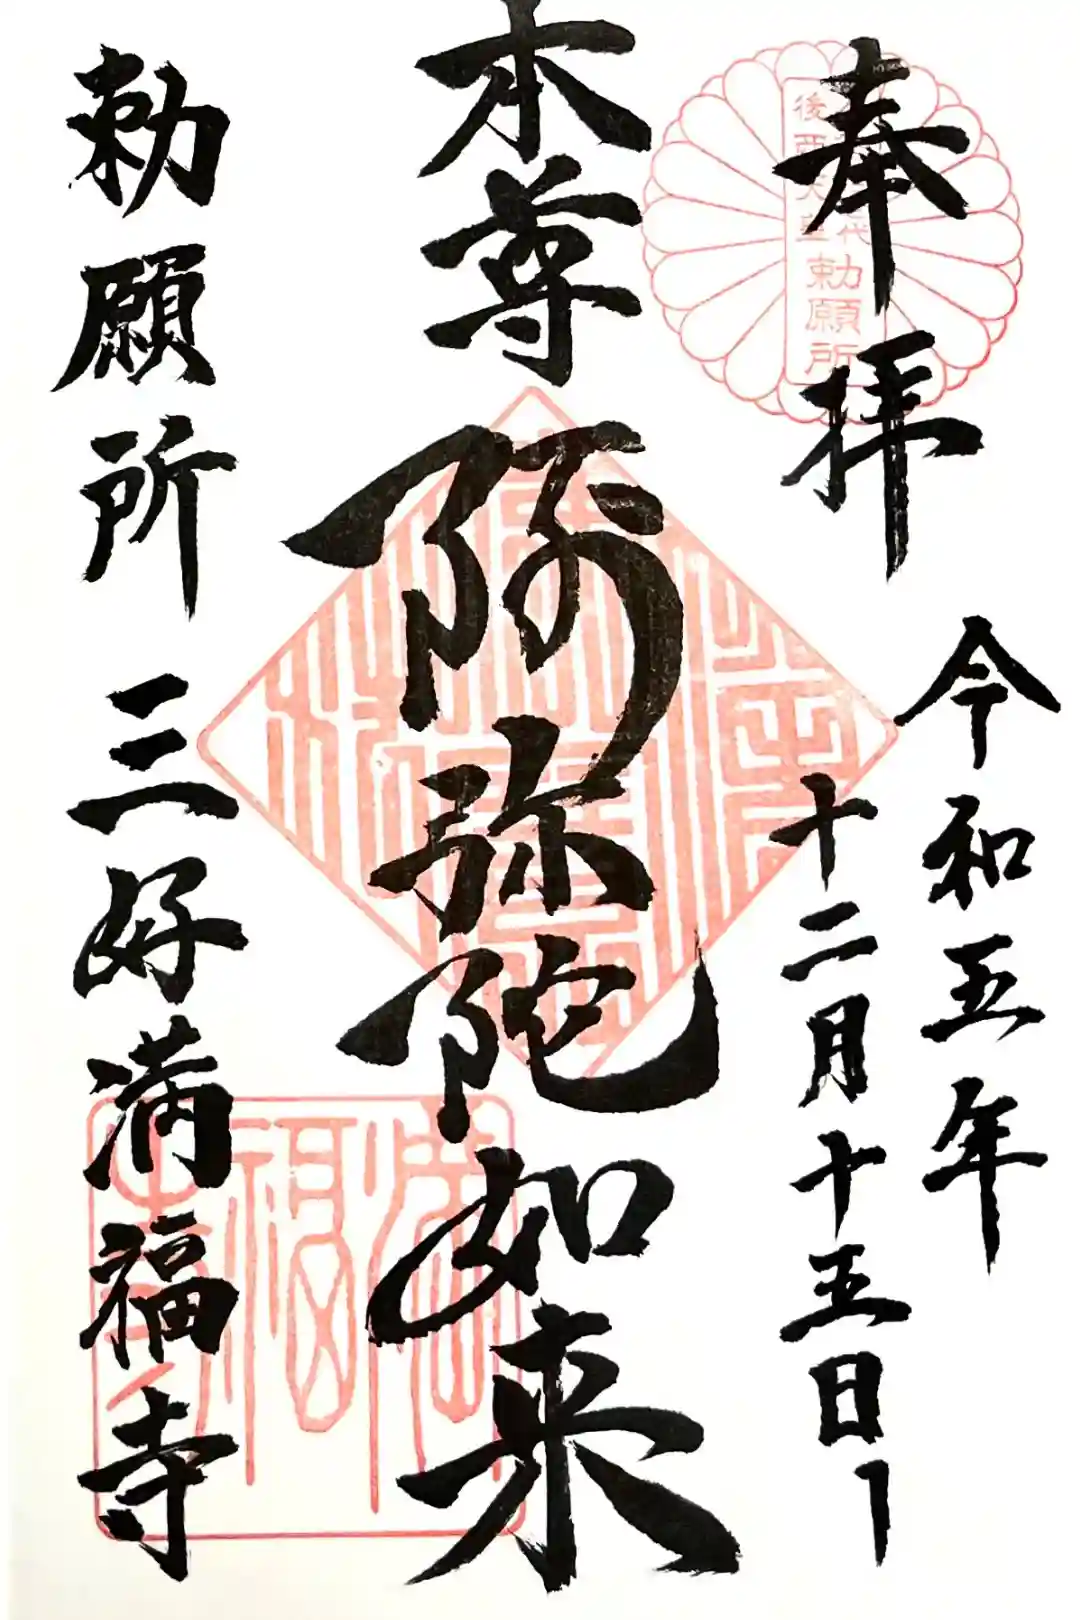 奉拝
令和五年
十二月十五日
本尊 阿弥陀如来
勅願所 三好満福寺
勅願所